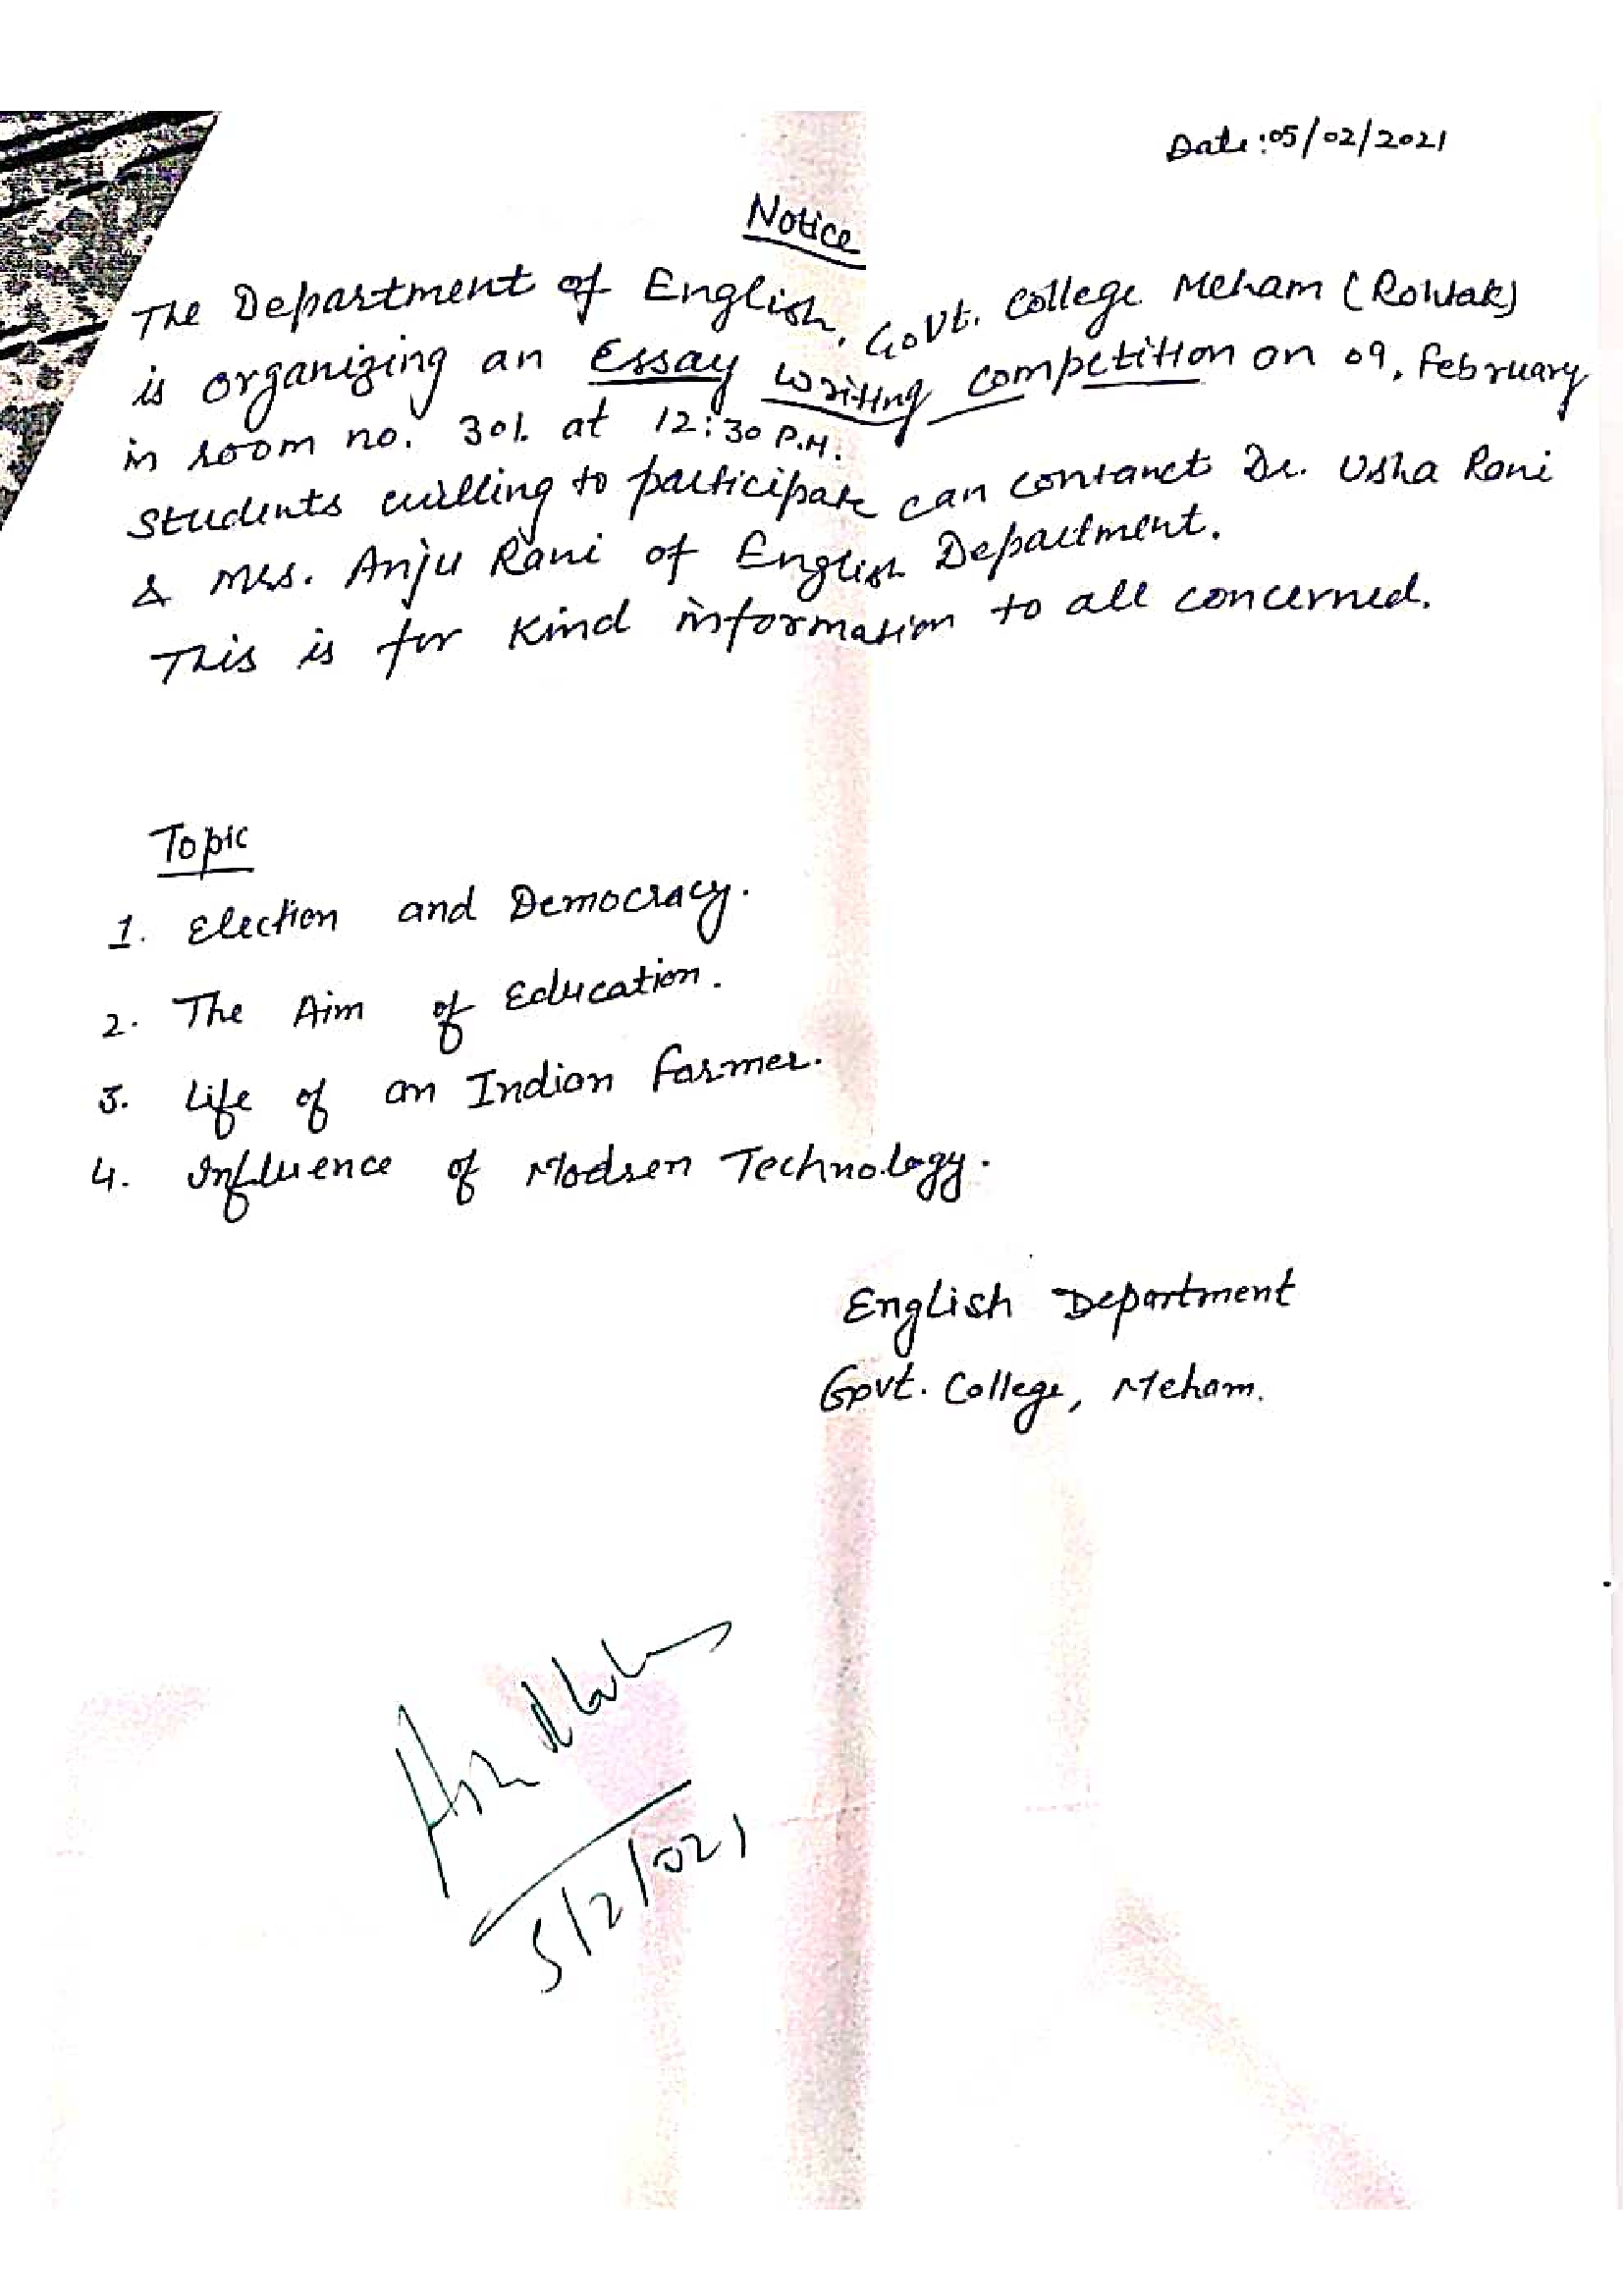 Date: 05/02/2021
Notice
The Department of English, Govt. College Meham (Rohtak)
is organizing an Essay writing competition on 09, February
in room no. 301. at 12:30 P.M.
Students willing to participate can contanct Dr. Usha Rani
& Mrs. Anju Rani of English Department.
This is for Kind information to all concerned.
Topic
1. Election and Democracy.
2. The Aim of Education.
3. Life of an Indian Farmer.
4. Influence of Modern Technology.
English Department
Govt. College, Meham.
5/2/021